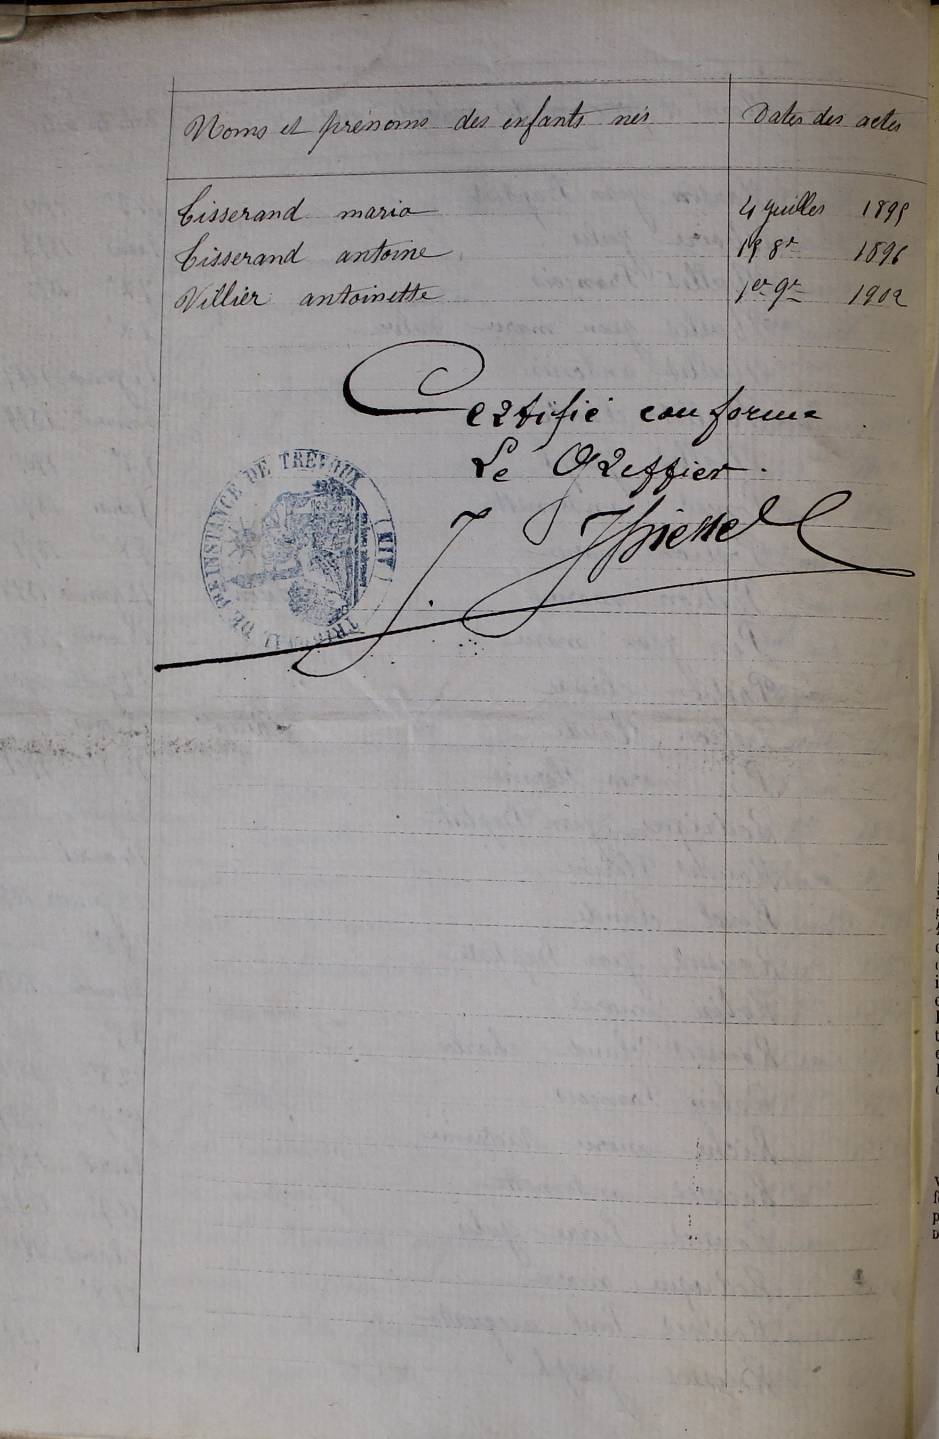 Noms et prénoms des enfants nés Dates des actes
Tisserand maria 4 juillet 1895
Tisserand antoine 19 8r 1896
Villier antoinette 1er 9r 1902
Certifié conforme
Le Greffier.
TRIBUNAL DE 1RE INSTANCE DE TRÉVOUX (AIN)